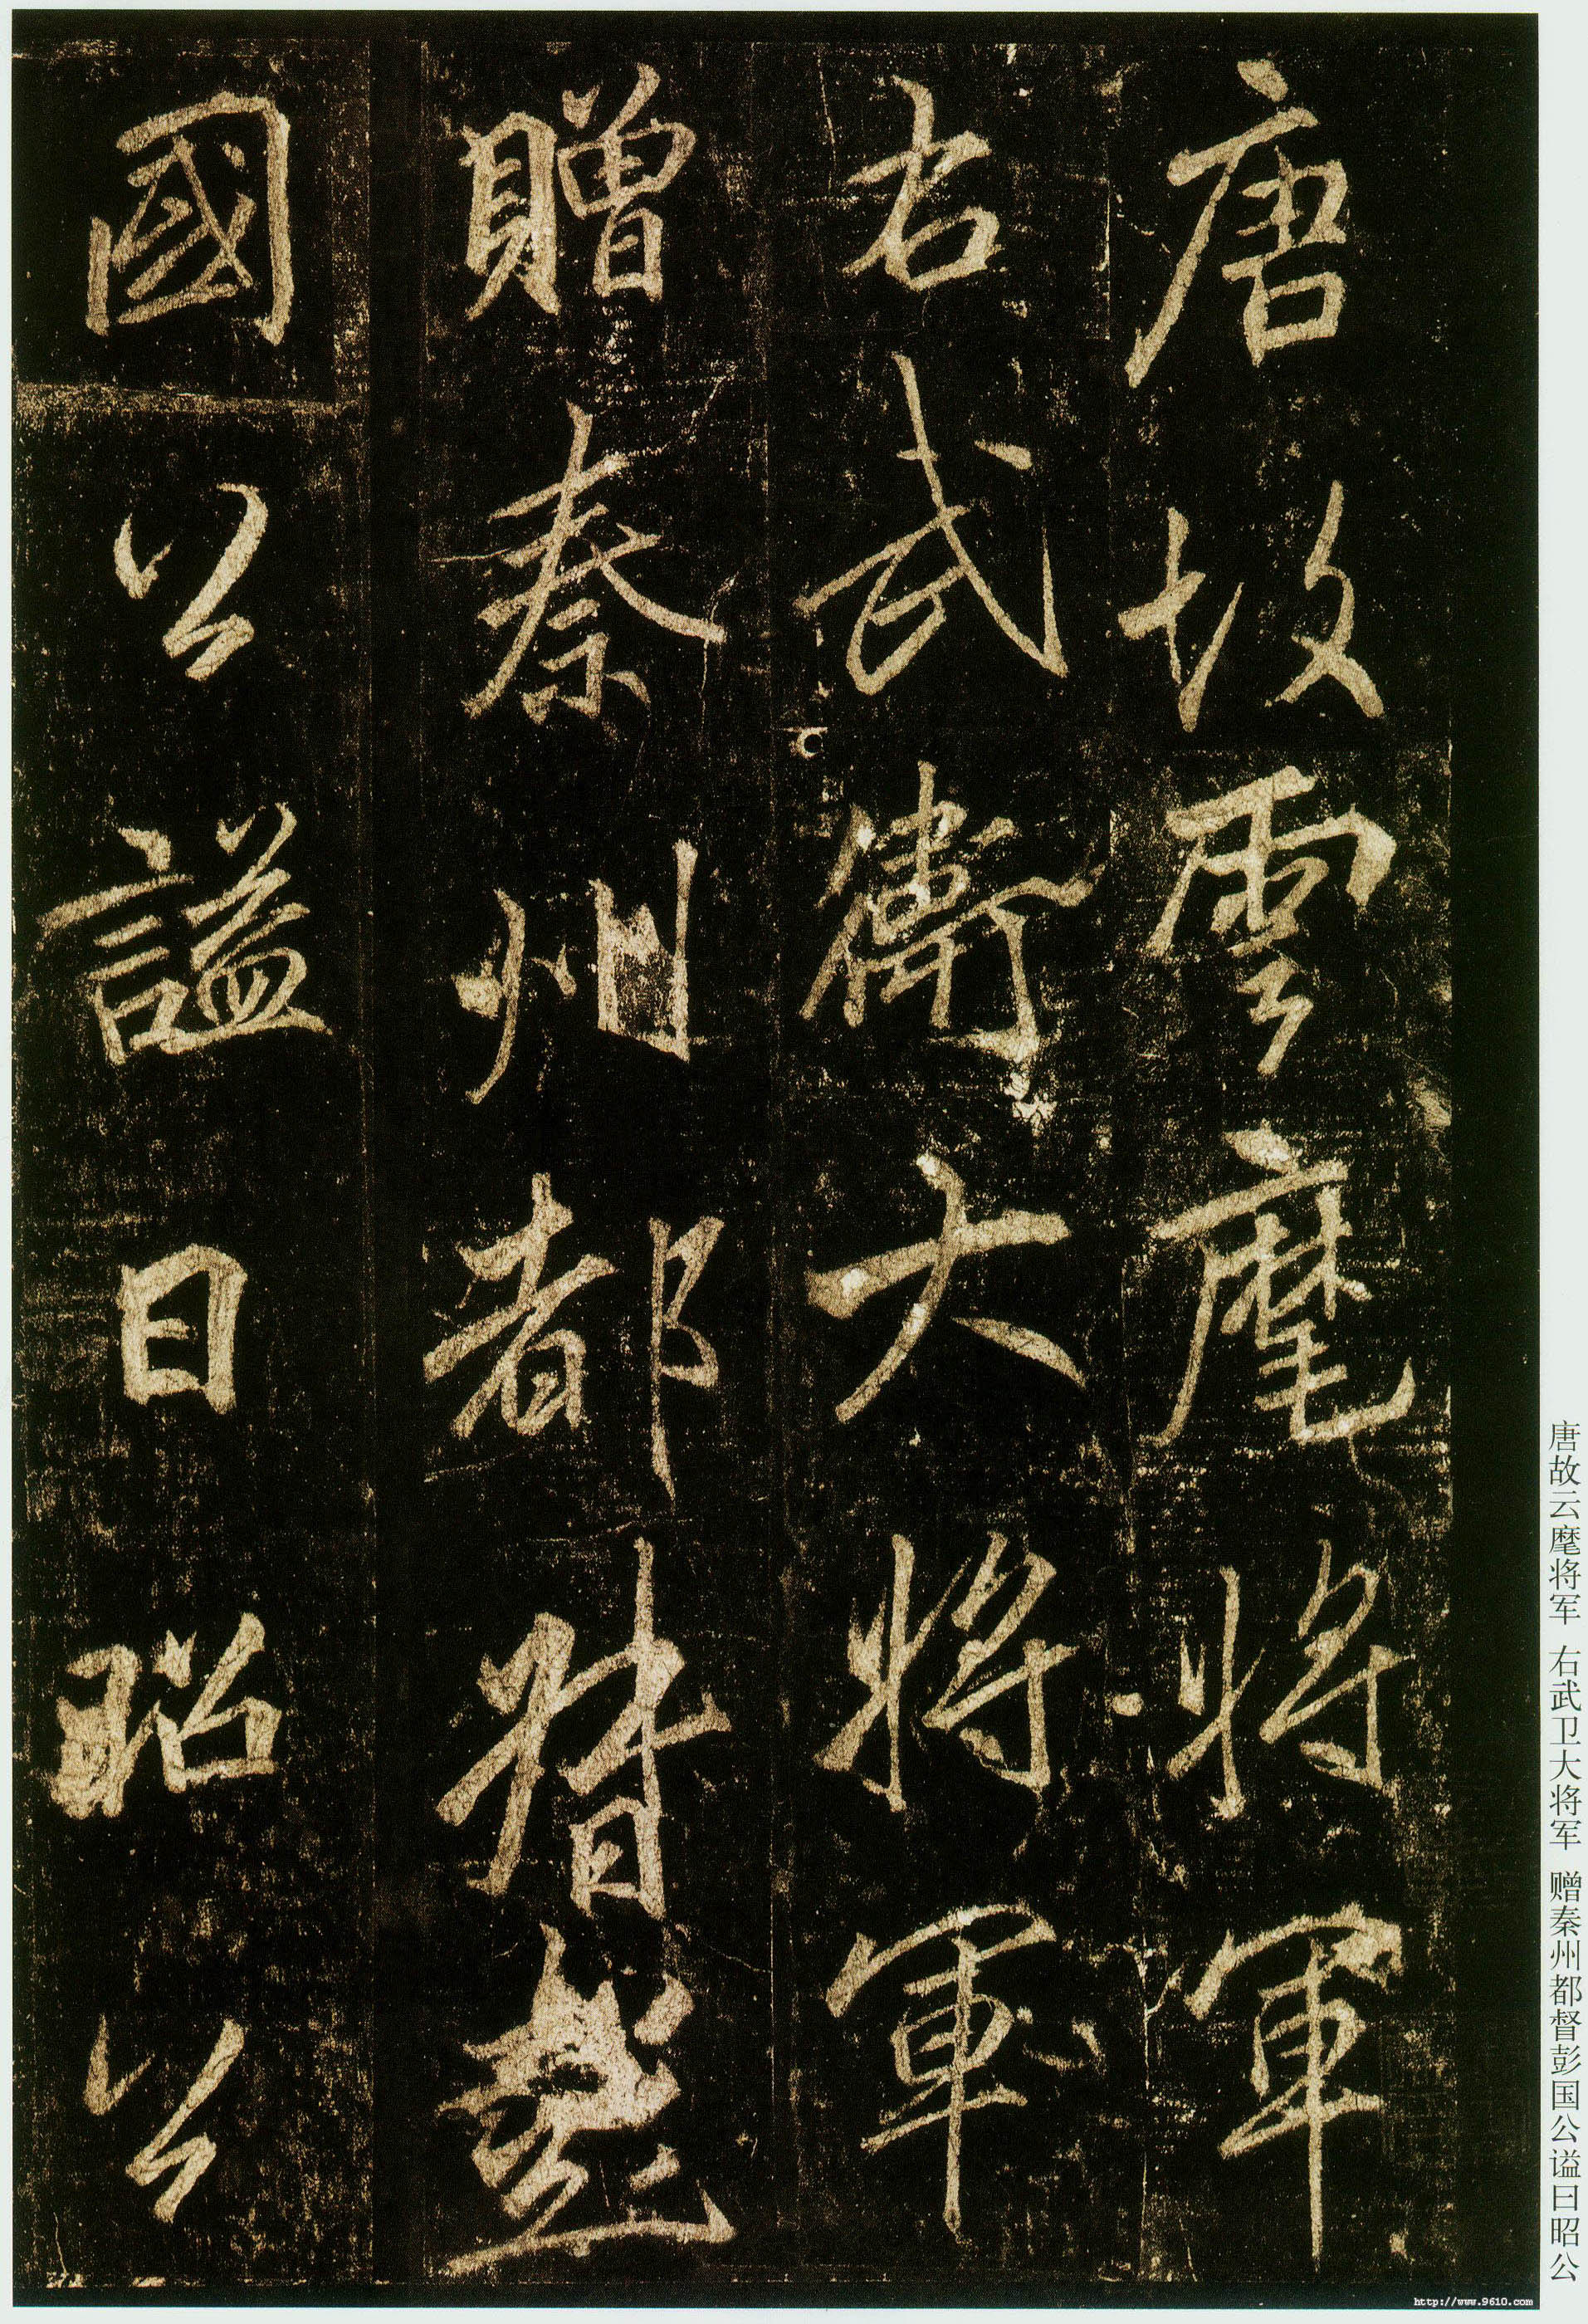 唐故雲麾將軍
右武衛大將軍
贈秦州都督彭
國公謚曰昭公
唐故云麾将军 右武卫大将军 赠秦州都督彭国公谥曰昭公
http://www.9610.com